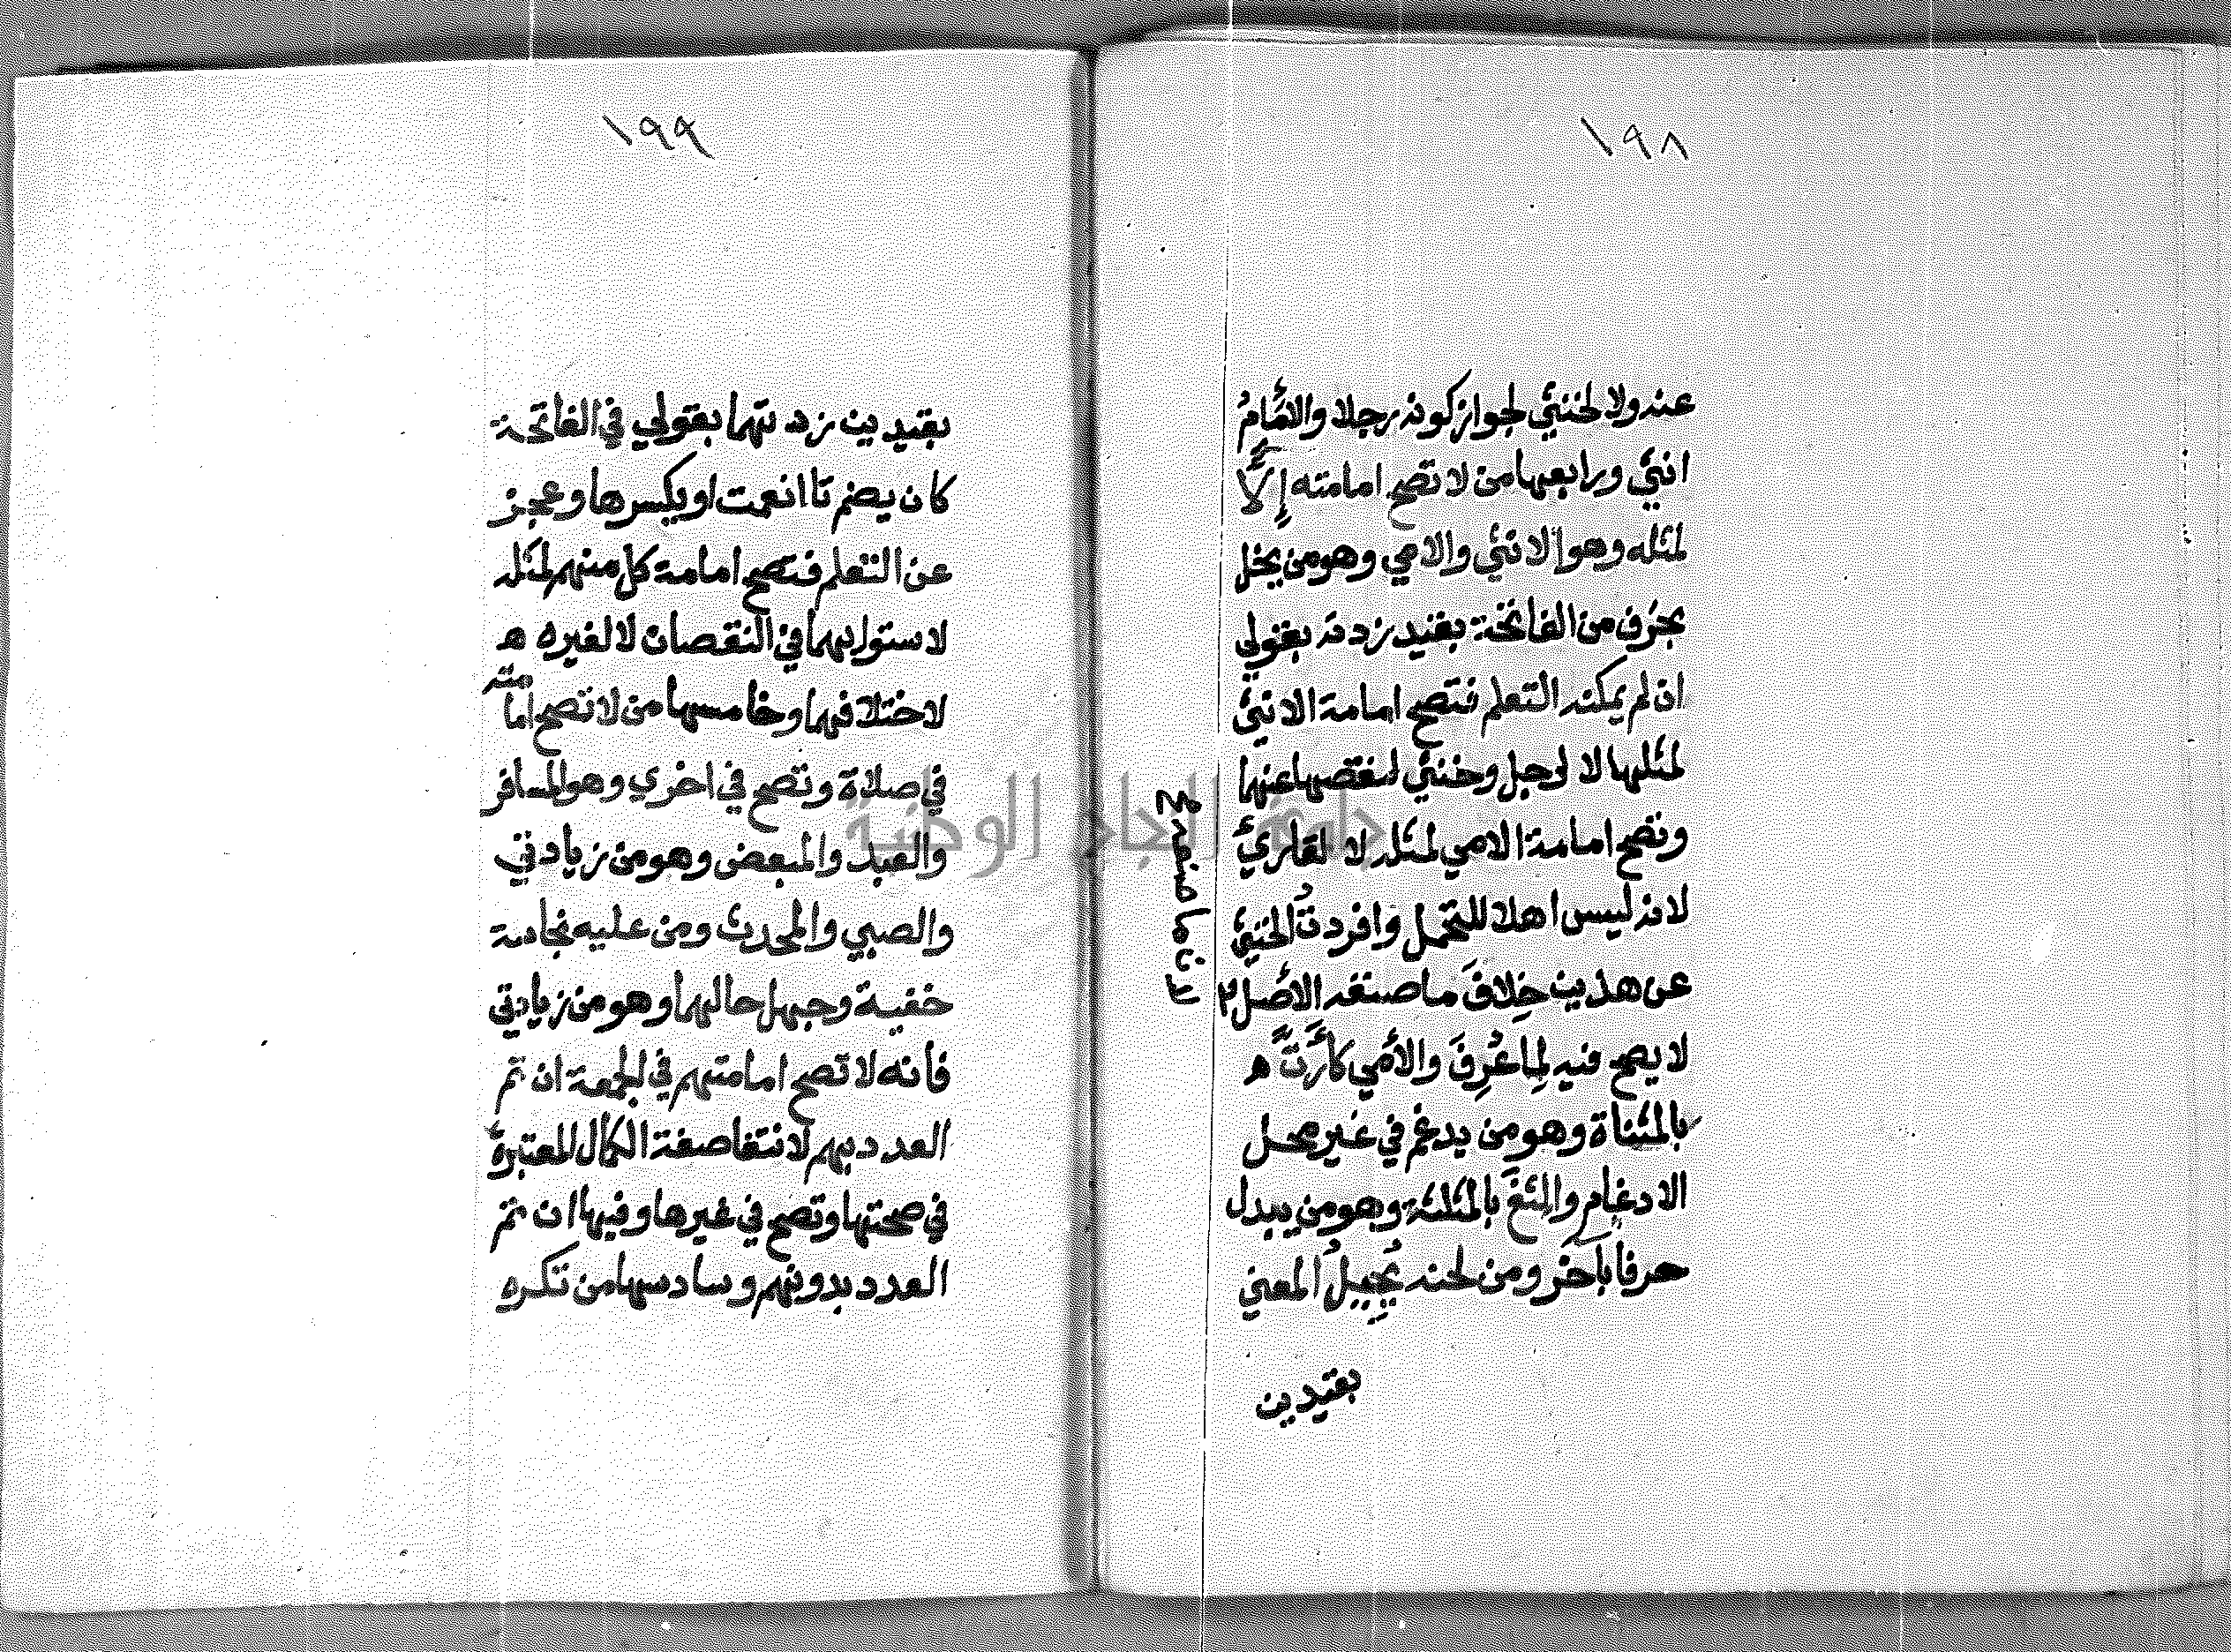 ١٩٨
عنه ولا لخنثي لجواز كونه رجلا والامَامُ
انثي ورابعها من لا تصح امامته إلَّا
لمثله وهو الانثي والامي وهو من يخل
بحَرف من الفاتحة بقيد زدته بقولي
ان لم يمكنه التعلم فتصح امامة الانثي
لمثلها لا لرجل وخنثي لنقصها عنهما
وتصح امامة الامي لمثله لا لقاريءٍ
لانه ليس اهلا للتحمل وافردتُ الخنثي
عن هذين خِلافَ ما صنعه الاصل ٢
لان ما صنعه ع
لا يصح فيه لِما عُرِفَ والأمي كأَرَتَّ ه
بالمثناة وهو من يدغم في غير محل
الادغامِ والِثغَ بالمثلثة وهو من يبدل
حرفا بآخر ومن لحنه يُحِيلُ المعني
بقيدين
١٩٩
بقيدين زدتهما بقولي في الفاتحة
كان يضم تا انعمت او يكسرها وعجز
عن التعلم فتصح امامة كل منهم لمثله
لاستوايهما في النقصان لا لغيره ه
لاختلافهما وخامسها من لا تصح اما
مته
في صلاة وتصح في اخري وهو المسافر
والعبد والمبعض وهو من زيادتي
والصبي والمحدث ومن عليه نجاسة
خفية وجهل حالهما وهو من زيادتي
فانه لا تصح امامتهم في الجمعة ان تم
العدد بهم لانتفا صفة الكمال المعتبرة
في صحتها وتصح في غيرها وفيها ان تم
العدد بدونهم وسادسها من تكره
جامعة النجاح الوطنية